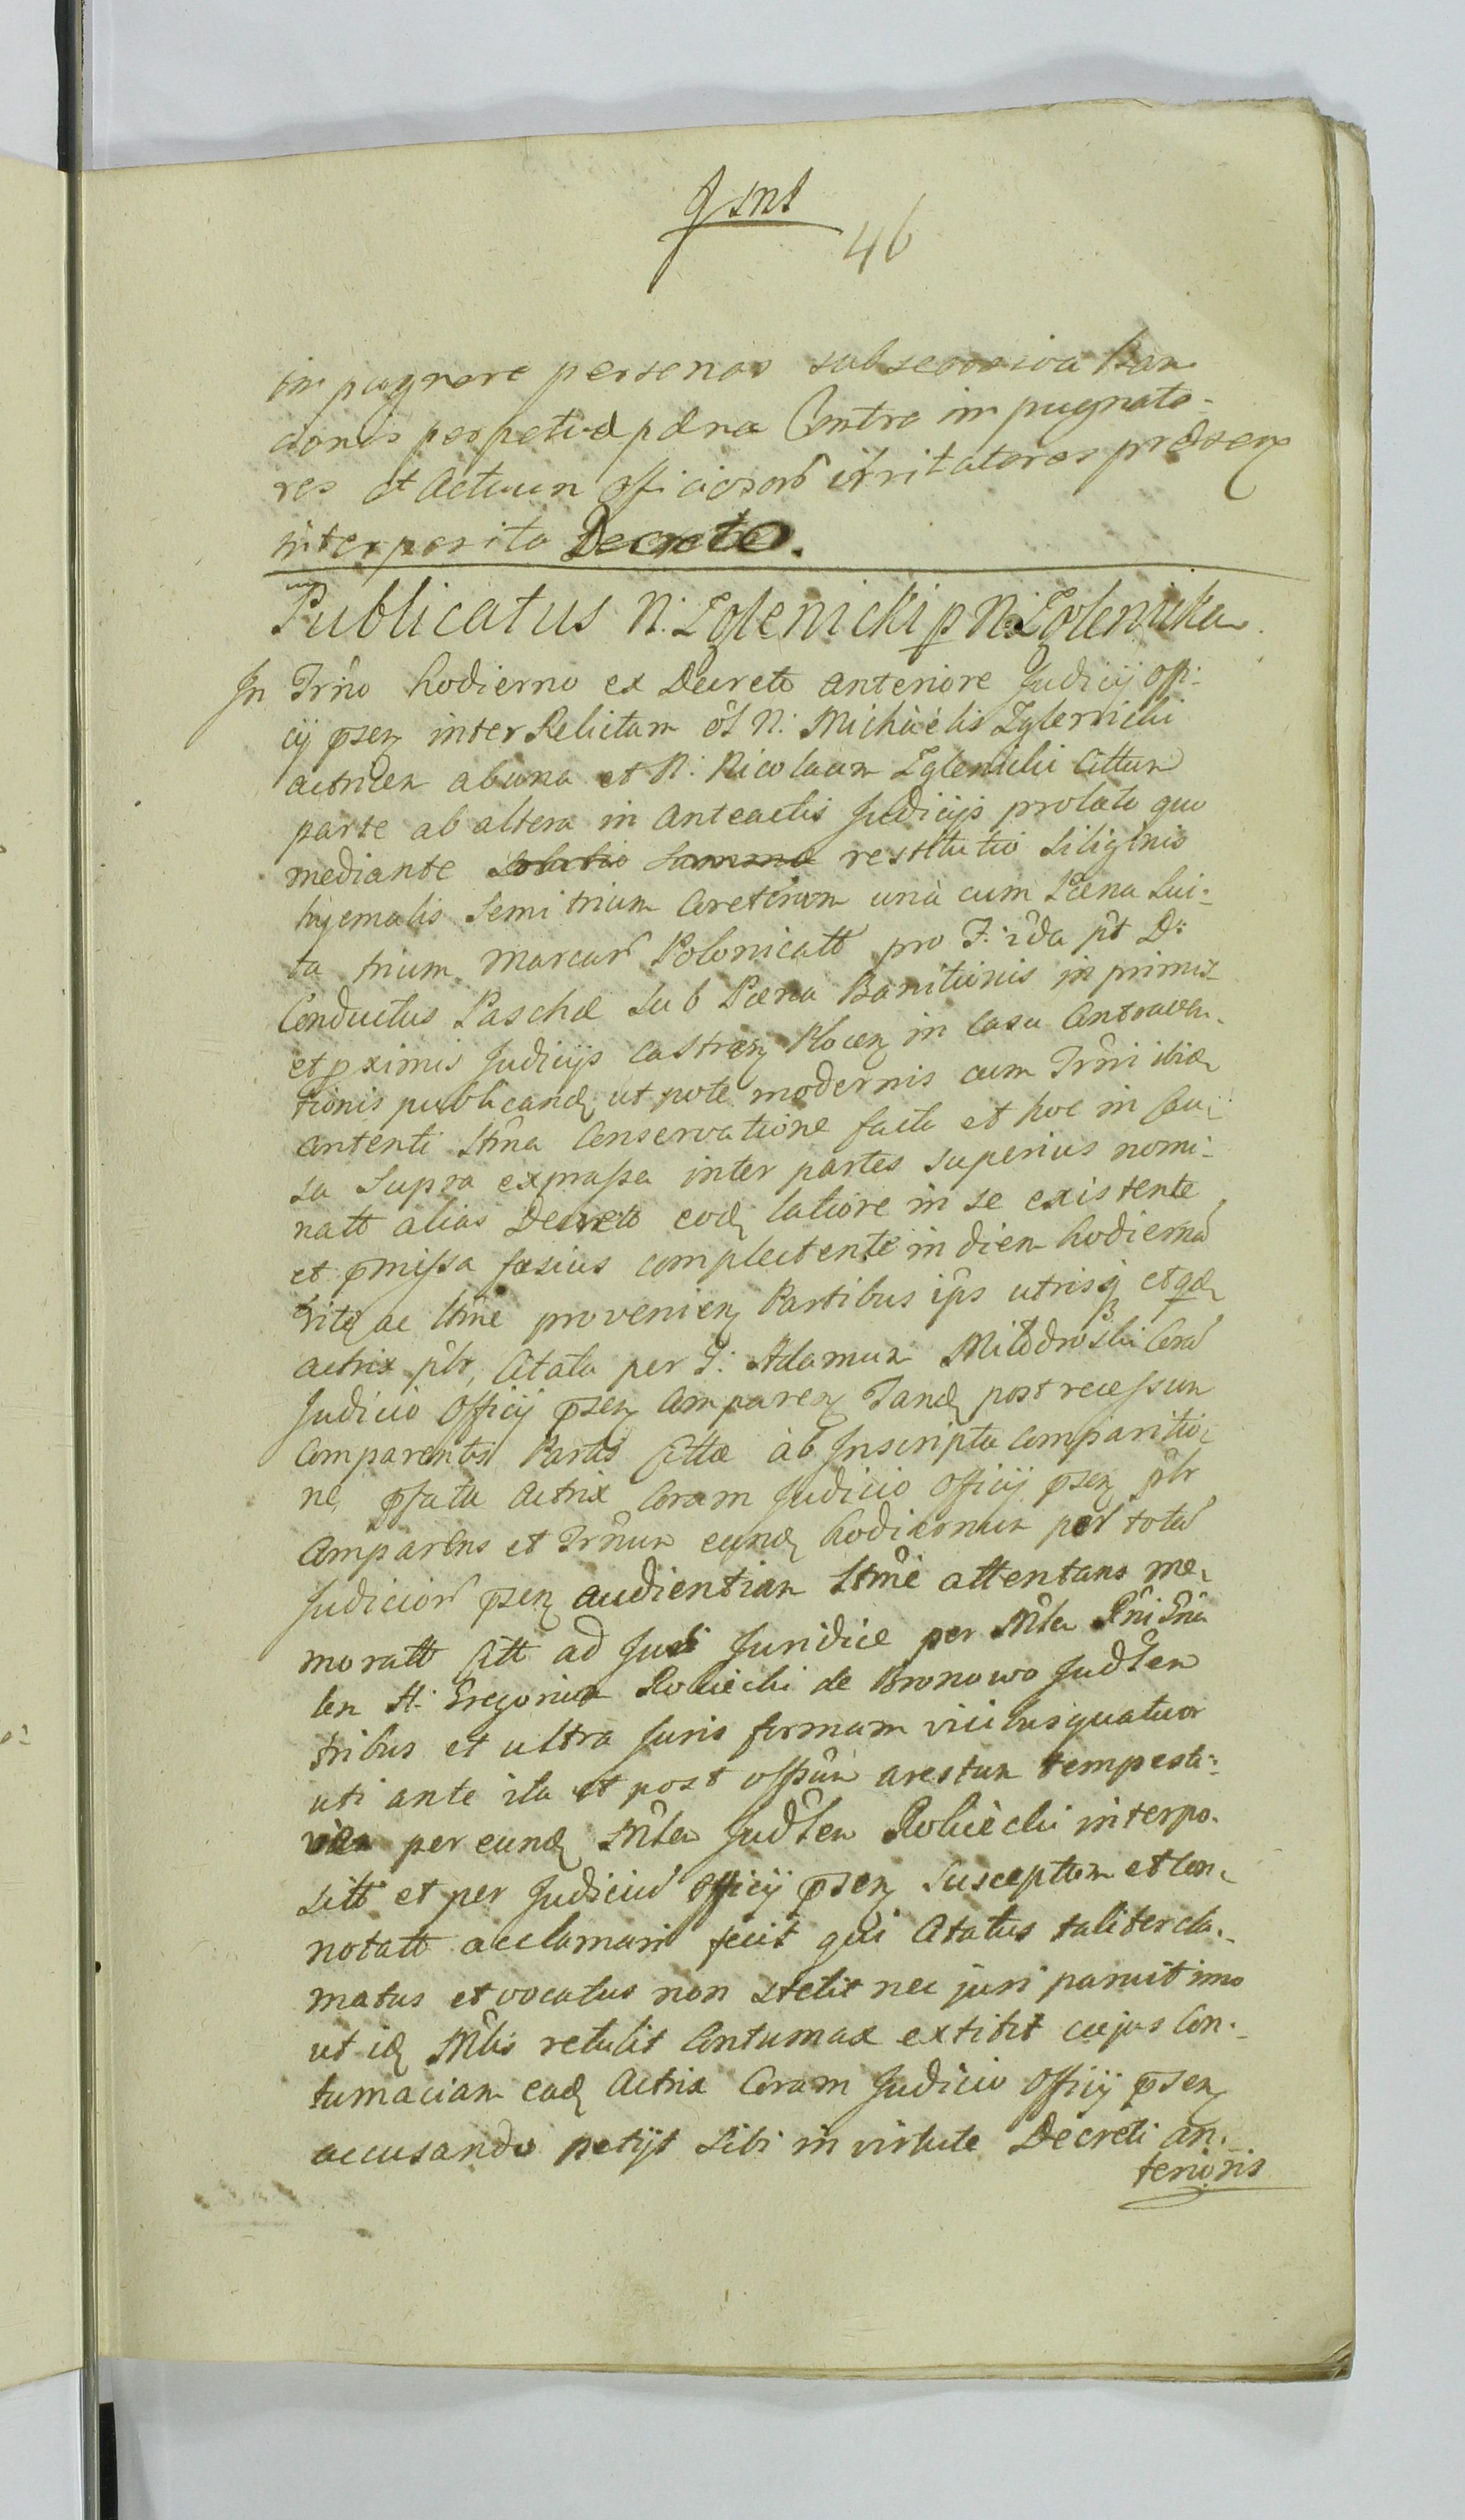 46
impugnare personas subsecasiva Ban
cionis perpetuæ pæna Contra impugnato-
res et Actuum officiosor irritatores præsen
interposito Decreto.
Publicatus N: Zglenicki p N: Zglenicka
In Trno hodierno ex Decreto anteriore Judicij offi-
cij psen inter Relictam ol N: Michaelis Zglenicki
actricem ab una et N: Nicolaum Zglenicki Cittum
parte ab altera in anteactis Judicijs prolato quo
mediante restitutio Siliginis
hyemalis Semi trium Coretinom una cum Pæna Lui-
ta trium Marcar Polonicatt pro F: ida pt D:
Conductus Paschæ sub Pæna Banitionis in primis
et pximis Judicijs Castren Plocen in Casu Contraven-
tionis publicand ut pote modernis cum Trni ibid
Contenti Stma Conservatione facta et hoc in Cau-
sa Supra expressa inter partes superius nomi-
natt alias Decreto eod latiore in se existente
et pmissa fusius complectente in diem hodierna
rite ac ltme provenien Partibus ips utrisq etqd
actrix plr, Citata per G: Adamum Milodroski Cora
Judicio Officij psen Comparen Tand post recessum
Comparentis Partis Cittæ ab Inscripta comparitio-
ne, pfata Actrix Coram Judicio Officij psen plr
Comparens et Trnum eund hodiernum per tota
Judicior psen audientiam ltme attentans me-
moratt Citt ad Judi Juridice per Mtem Rni Gna
lem H: Gregorium Robiecki de Bronowo Judlem
tribus et ultra Juris formam vicibus quatuor
uti ante ita et post arestum tempesti-
per eund Mtem Judlem Robiecki interpo-
sitt et per Judiciu Officij psen Susceptum et Con-
notatt acclamari fecit qui Citatus taliter cla-
matus et vocatus non stetit nec juri paruit imo
ut id Mlis retulit Contumax extitit cujus Con-
tumaciam ead Actrix Coram Judicio Officij psen
accusando petijt Sibi in virtute Decreti an-
terioris